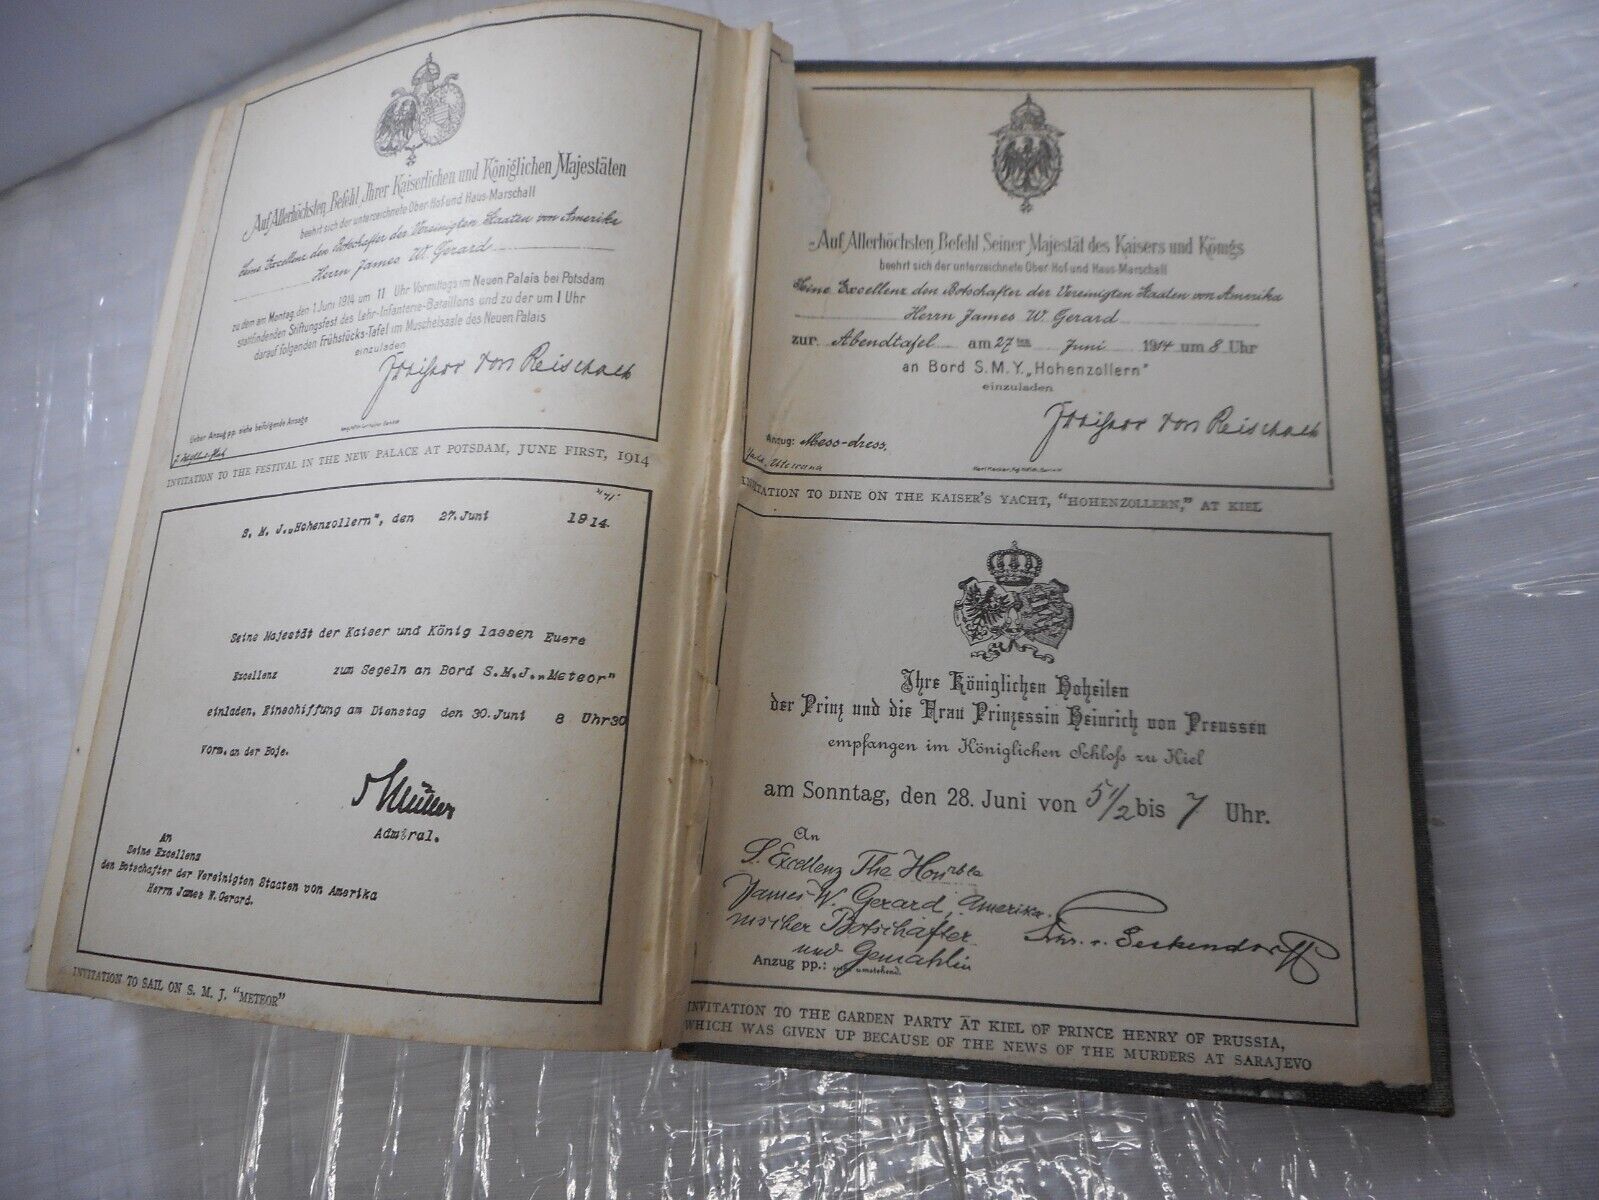 Auf Allerhöchsten Befehl Ihrer Kaiserlichen und Königlichen Majestäten
beehrt sich der unterzeichnete Ober-Hof und Haus-Marschall
Seine Excellenz den Botschafter der Vereinigten Staaten von Amerika
Herrn James W. Gerard
zu dem am Montag den 1. Juni 1914 um 11 Uhr Vormittags im Neuen Palais bei Potsdam
stattfindenden Stiftungsfest des Lehr-Infanterie-Bataillons und zu der um 1 Uhr
darauf folgenden Frühstücks-Tafel im Muschelsaale des Neuen Palais
einzuladen
von Reischach
Ueber Anzug pp. siehe beifolgende Ansage
INVITATION TO THE FESTIVAL IN THE NEW PALACE AT POTSDAM, JUNE FIRST, 1914
S. M. J. „Hohenzollern", den 27. Juni 1914.
Seine Majestät der Kaiser und König lassen Euere
Excellenz zum Segeln an Bord S.M.J. „Meteor"
einladen, Einschiffung am Dienstag den 30. Juni 8 Uhr 30
Vorm. an der Boje.
Müller
Admiral.
An
Seine Excellenz
den Botschafter der Vereinigten Staaten von Amerika
Herrn James W. Gerard.
INVITATION TO SAIL ON S. M. J. "METEOR"
Auf Allerhöchsten Befehl Seiner Majestät des Kaisers und Königs
beehrt sich der unterzeichnete Ober-Hof und Haus-Marschall
Seine Excellenz den Botschafter der Vereinigten Staaten von Amerika
Herrn James W. Gerard
zur Abendtafel am 27ten Juni 1914 um 8 Uhr
an Bord S. M. Y. „Hohenzollern"
einzuladen
von Reischach
Anzug: Mess-dress.
INVITATION TO DINE ON THE KAISER'S YACHT, "HOHENZOLLERN," AT KIEL
Ihre Königlichen Hoheiten
der Prinz und die Frau Prinzessin Heinrich von Preussen
empfangen im Königlichen Schloß zu Kiel
am Sonntag, den 28. Juni von 5 1/2 bis 7 Uhr.
An
S. Excellenz The Honrble
James W. Gerard, Amerika-
nischer Botschafter
und Gemahlin
Frhr. v. Seckendorff
Anzug pp.: umstehend.
INVITATION TO THE GARDEN PARTY AT KIEL OF PRINCE HENRY OF PRUSSIA,
WHICH WAS GIVEN UP BECAUSE OF THE NEWS OF THE MURDERS AT SARAJEVO